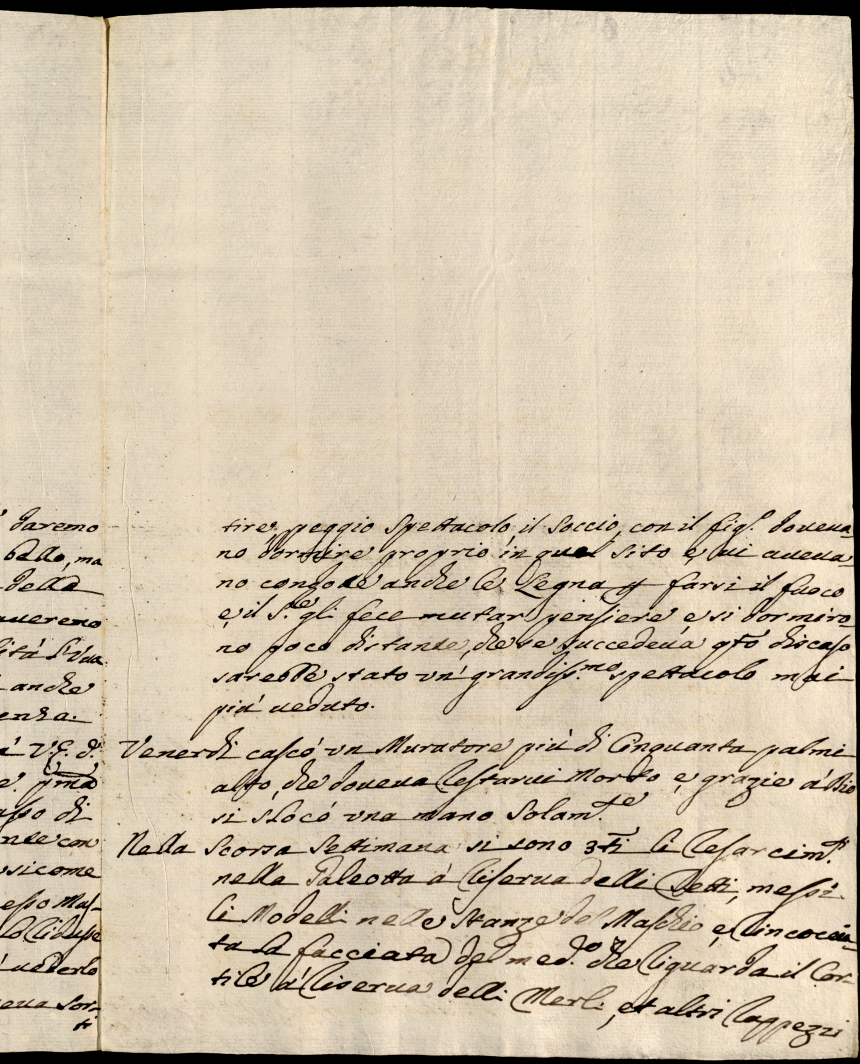 daremo
ballo, ma
della
averemo
anche
enza.
à V. E. d.
e pma
asso di
nte con
sicome
esso Mas-
vederlo
eva sor-
ti
tire, peggio spettacolo, il soccio, con il figl.º doveva-
no dormire proprio in quel sito e vi aveva-
no anche le Legna p farsi il fuoco
e il S.re gli fece mutar pensiere e si dormiro-
no poco distante, che se succedeva qto discaso
sarebbe stato vn grandiss.mo spettacolo mai
più veduto.
Venerdi cascò vn Muratore più di Cinquanta palmi
alto, che doveva restarvi Morto e, grazie à Dio
si slocò vna mano solam.te
Nella scorsa settimana si sono 3ti li resarcim.ti
nella Galeotta à riserva delli Letti, messi
li Modelli nelle stanze del Maschio, e rincoccia-
ta la facciata del med.º che riguarda il Cor-
tile à riserva delli Merli, et altri rappezzi